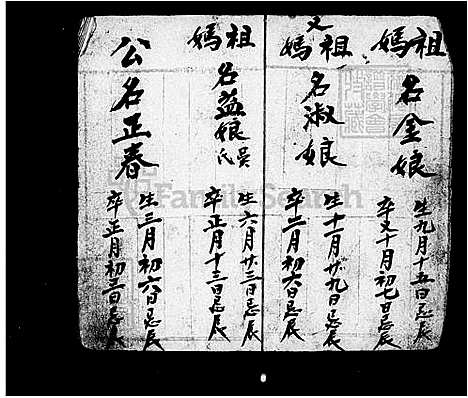 祖媽
名金娘
生九月十五日忌辰
卒又十月初七日忌辰
又祖媽
名淑娘
生十一月廿九日忌辰
卒二月初六日忌辰
祖媽
名益娘吳氏
生六月廿三日忌辰
卒正月十三日忌辰
公名正春
生三月初六日忌辰
卒正月初三日忌辰
FamilySearch